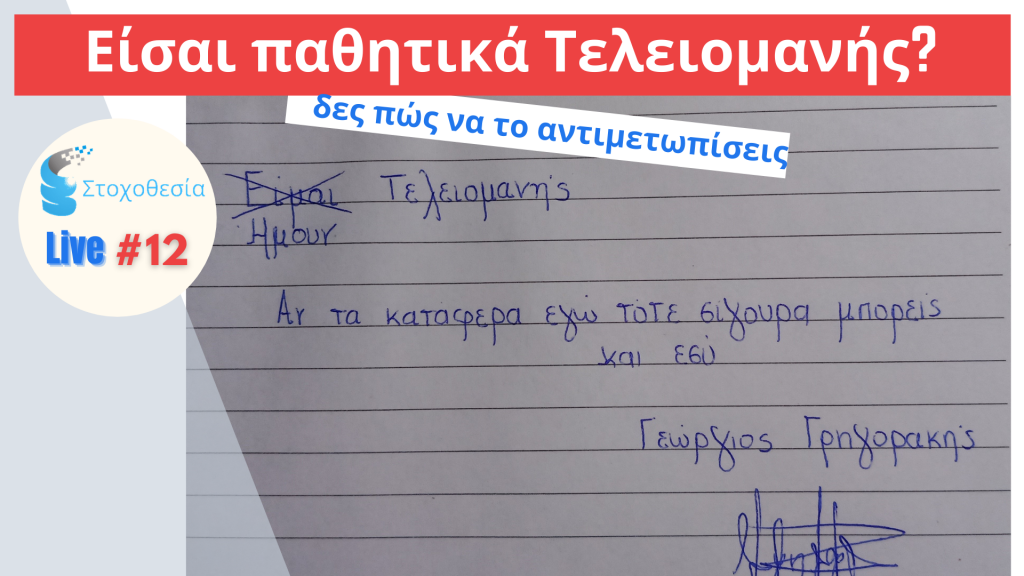 Είσαι παθητικά Τελειομανής?
δες πώς να το αντιμετωπίσεις
Στοχοθεσία
Live #12
Είμαι Τελειομανής
Ήμουν
Αν τα κατάφερα εγώ τότε σίγουρα μπορείς
και εσύ
Γεώργιος Γρηγοράκης